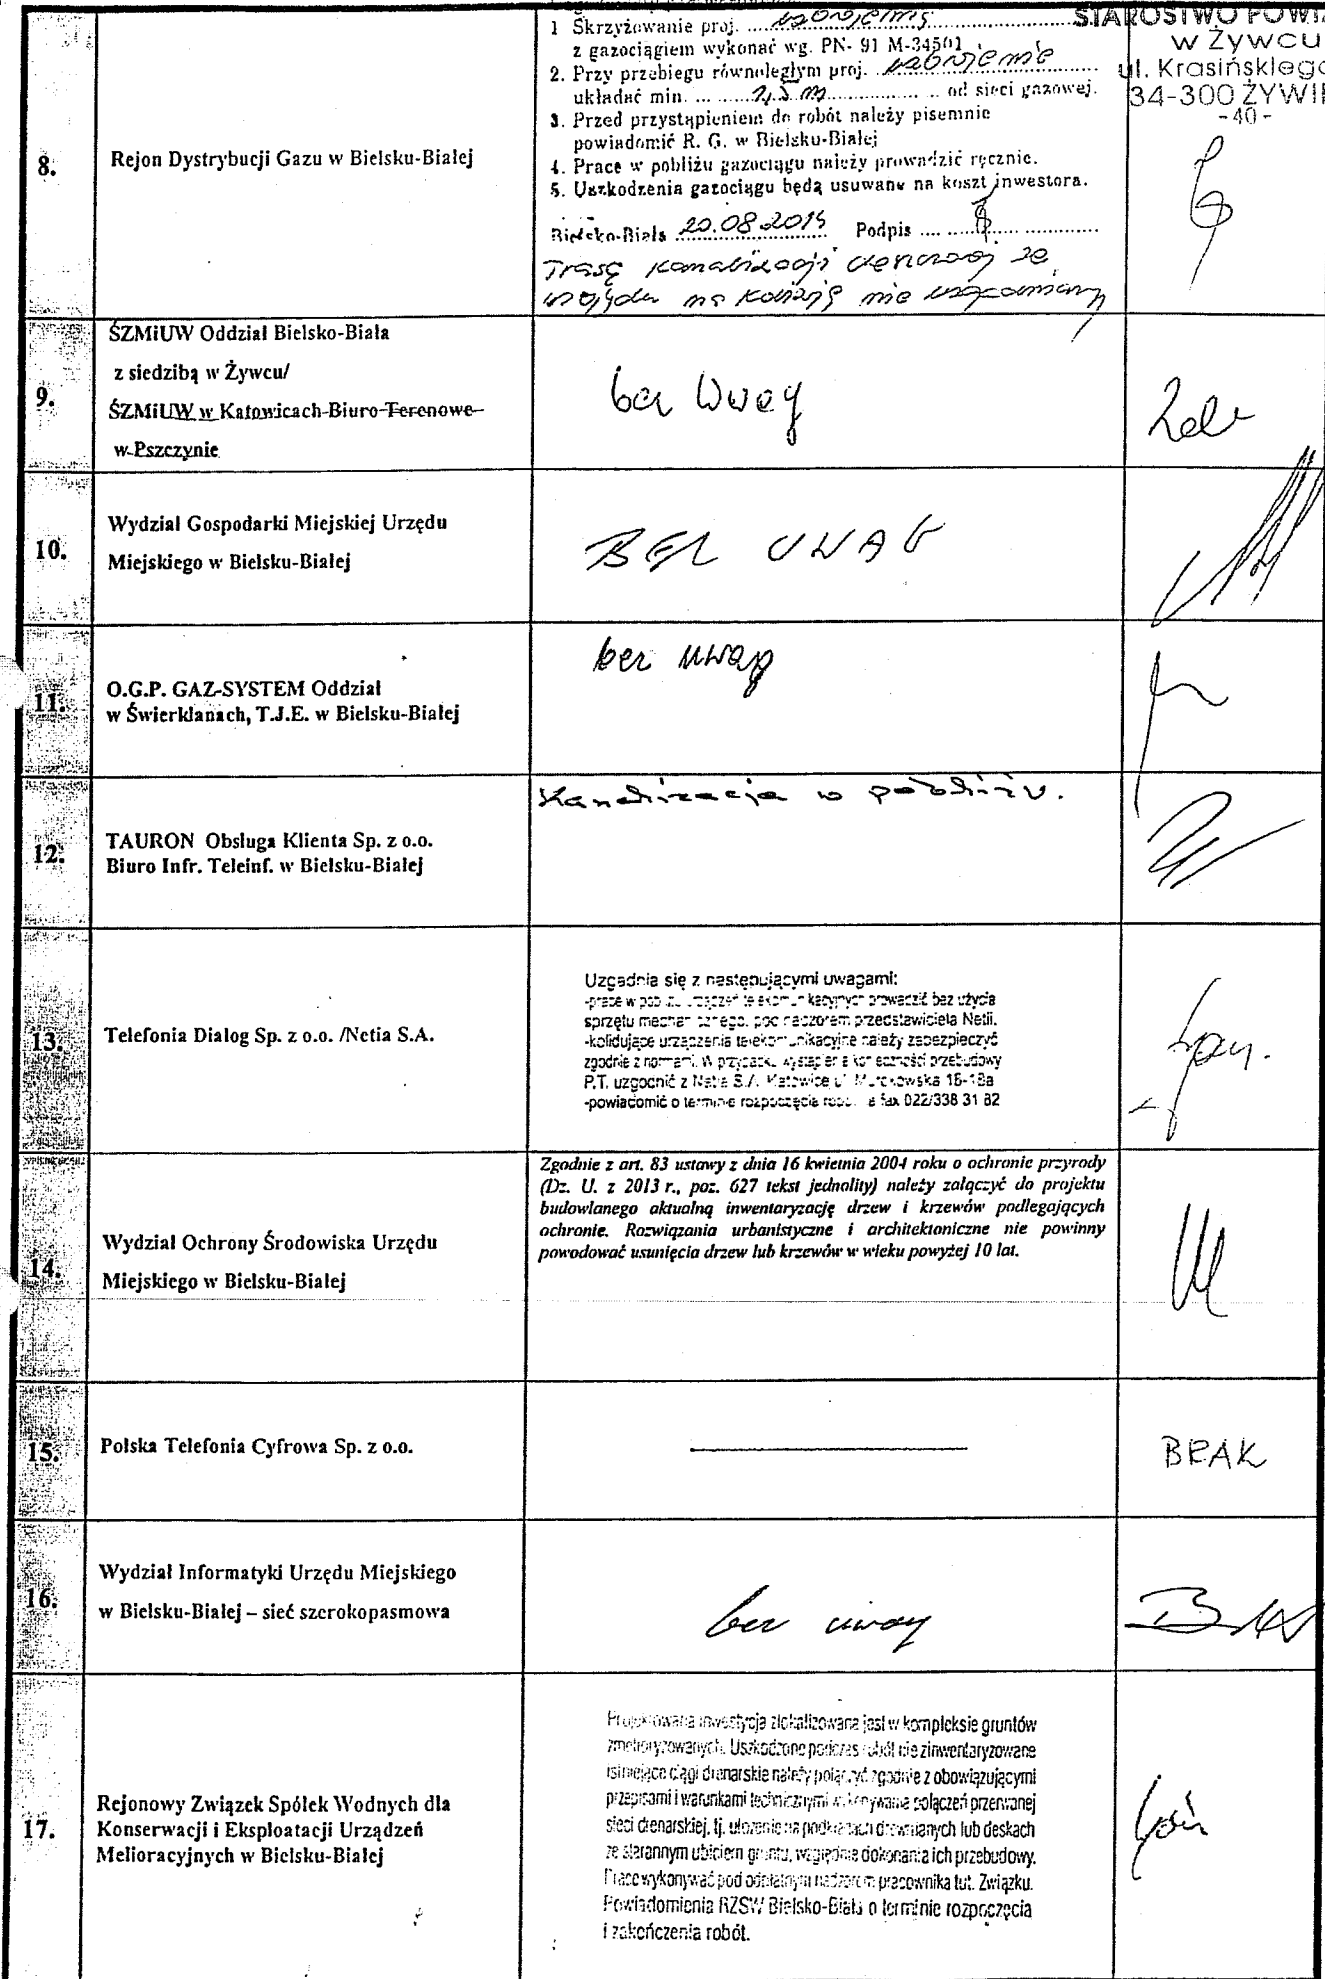 1 Skrzyżowanie proj.
z gazociągiem wykonać wg. PN- 91 M-34501
2. Przy przebiegu równoległym proj.
układać min. ... 1,5 m ... od sieci gazowej.
3. Przed przystąpieniem do robót należy pisemnie
powiadomić R. G. w Bielsku-Białej
4. Prace w pobliżu gazociągu należy prowadzić ręcznie.
5. Uszkodzenia gazociągu będą usuwane na koszt inwestora.
Bielsko-Biała 20.08.2014 Podpis
Trasę kanalizacji
na kolizję nie
STAROSTWO POWI
w Żywcu
ul. Krasińskiego
34-300 ŻYWI
-40-
8.
Rejon Dystrybucji Gazu w Bielsku-Białej
9.
ŚZMiUW Oddział Bielsko-Biała
z siedzibą w Żywcu/
ŚZMiUW w Katowicach-Biuro-Terenowe
w-Pszczynie
bez uwag
10.
Wydział Gospodarki Miejskiej Urzędu
Miejskiego w Bielsku-Białej
BEZ UWAG
11.
O.G.P. GAZ-SYSTEM Oddział
w Świerklanach, T.J.E. w Bielsku-Białej
bez uwag
12.
TAURON Obsługa Klienta Sp. z o.o.
Biuro Infr. Teleinf. w Bielsku-Białej
Kanalizacja w pobliżu.
13.
Telefonia Dialog Sp. z o.o. /Netia S.A.
Uzgadnia się z następującymi uwagami:
-prace w pobliżu urządzeń telekomunikacyjnych prowadzić bez użycia
sprzętu mechanicznego, pod nadzorem przedstawiciela Netii.
-kolidujące urządzenia telekomunikacyjne należy zabezpieczyć
zgodnie z normami. W przypadku wystąpienia konieczności przebudowy
P.T. uzgodnić z Netia S.A. Katowice ul. Murckowska 16-18a
-powiadomić o terminie rozpoczęcia robót na fax 022/338 31 82
14.
Wydział Ochrony Środowiska Urzędu
Miejskiego w Bielsku-Białej
Zgodnie z art. 83 ustawy z dnia 16 kwietnia 2004 roku o ochronie przyrody
(Dz. U. z 2013 r., poz. 627 tekst jednolity) należy załączyć do projektu
budowlanego aktualną inwentaryzację drzew i krzewów podlegających
ochronie. Rozwiązania urbanistyczne i architektoniczne nie powinny
powodować usunięcia drzew lub krzewów w wieku powyżej 10 lat.
15.
Polska Telefonia Cyfrowa Sp. z o.o.
BRAK
16.
Wydział Informatyki Urzędu Miejskiego
w Bielsku-Białej – sieć szerokopasmowa
bez uwag
17.
Rejonowy Związek Spółek Wodnych dla
Konserwacji i Eksploatacji Urządzeń
Melioracyjnych w Bielsku-Białej
Projektowana inwestycja zlokalizowana jest w kompleksie gruntów
zmelioryzowanych. Uszkodzone podczas robót nie zinwentaryzowane
istniejące ciągi drenarskie należy połączyć zgodnie z obowiązującymi
przepisami i warunkami technicznymi wykonywania połączeń przerwanej
sieci drenarskiej, tj. ułożenie na podkładach drewnianych lub deskach
ze starannym ubiciem gruntu, względnie dokonania ich przebudowy.
Prace wykonywać pod odpłatnym nadzorem pracownika tut. Związku.
Powiadomienia RZSW Bielsko-Biała o terminie rozpoczęcia
i zakończenia robót.